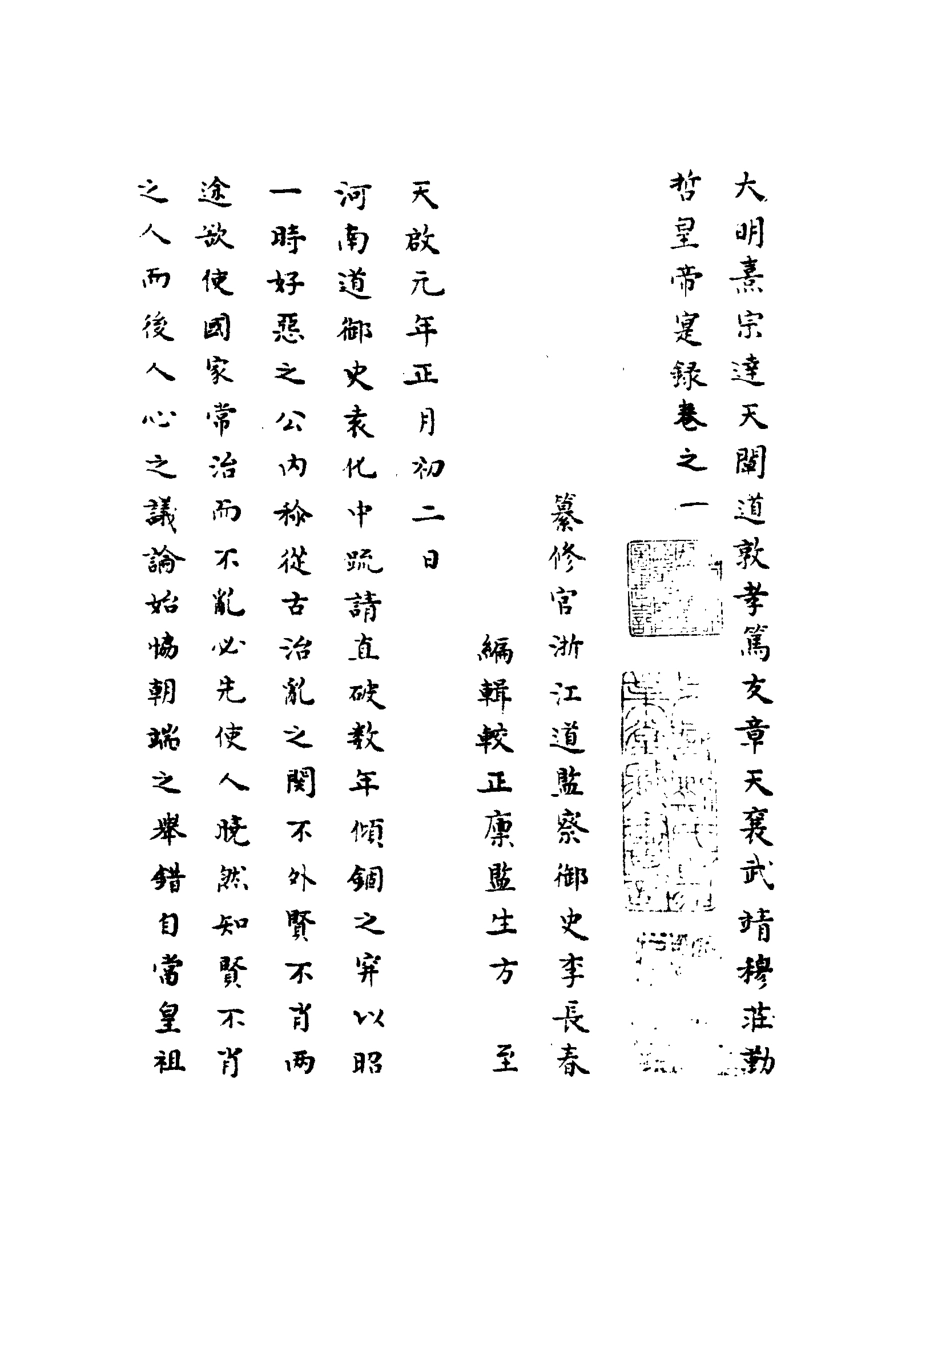 大明熹宗達天闡道敦孝篤友章天襃武靖穆莊勤
哲皇帝寔録卷之一
纂修官浙江道監察御史李長春
編輯較正廩監生方　至
天啟元年正月初二日
河南道御史袁化中䟽請直破数年傾錮之穽以昭
一時好惡之公內称從古治亂之関不外賢不肖两
途欲使國家常治而不亂必先使人曉然知賢不肖
之人而後人心之議論始恊朝端之舉錯自當皇祖